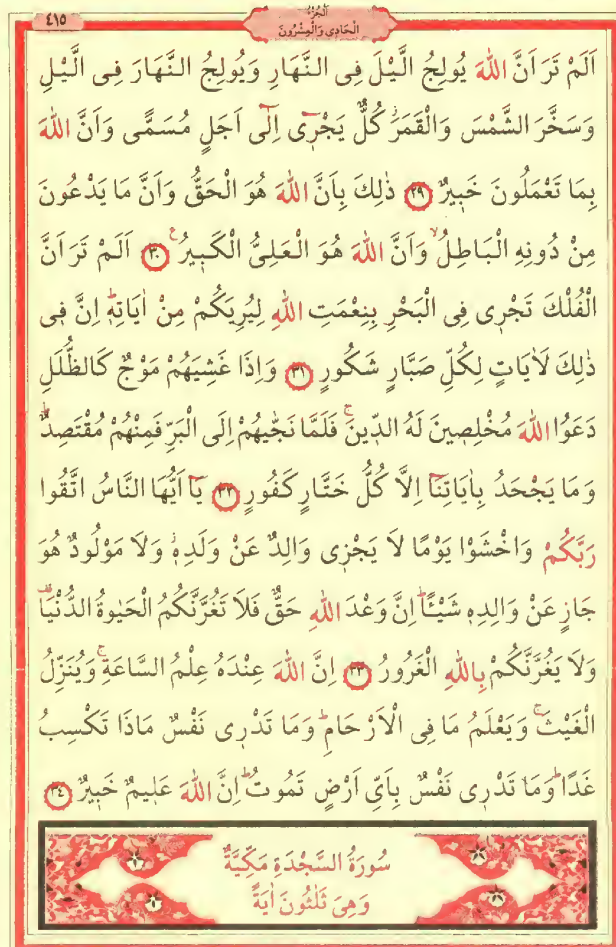 ٤١٥
اَلْجُزْءُ
الْحَادِى وَالْعِشْرُونَ
اَلَمْ تَرَ اَنَّ اللّٰهَ يُولِجُ الَّيْلَ فِى النَّهَارِ وَيُولِجُ النَّهَارَ فِى الَّيْلِ
وَسَخَّرَ الشَّمْسَ وَالْقَمَرَۘ كُلٌّ يَجْرٖٓى اِلٰٓى اَجَلٍ مُسَمًّى وَاَنَّ اللّٰهَ
بِمَا تَعْمَلُونَ خَبٖيرٌ ﴿٢٩﴾ ذٰلِكَ بِاَنَّ اللّٰهَ هُوَ الْحَقُّ وَاَنَّ مَا يَدْعُونَ
مِنْ دُونِهِ الْبَاطِلُۙ وَاَنَّ اللّٰهَ هُوَ الْعَلِىُّ الْكَبٖيرُ ﴿٣٠﴾ اَلَمْ تَرَ اَنَّ
الْفُلْكَ تَجْرٖى فِى الْبَحْرِ بِنِعْمَتِ اللّٰهِ لِيُرِيَكُمْ مِنْ اٰيَاتِهٖؕ اِنَّ فٖى
ذٰلِكَ لَاٰيَاتٍ لِكُلِّ صَبَّارٍ شَكُورٍ ﴿٣١﴾ وَاِذَا غَشِيَهُمْ مَوْجٌ كَالظُّلَلِ
دَعَوُا اللّٰهَ مُخْلِصٖينَ لَهُ الدّٖينَۚ فَلَمَّا نَجّٰيهُمْ اِلَى الْبَرِّ فَمِنْهُمْ مُقْتَصِدٌؕ
وَمَا يَجْحَدُ بِاٰيَاتِنَٓا اِلَّا كُلُّ خَتَّارٍ كَفُورٍ ﴿٣٢﴾ يَٓا اَيُّهَا النَّاسُ اتَّقُوا
رَبَّكُمْ وَاخْشَوْا يَوْمًا لَا يَجْزٖى وَالِدٌ عَنْ وَلَدِهٖۘ وَلَا مَوْلُودٌ هُوَ
جَازٍ عَنْ وَالِدِهٖ شَيْـًٔاؕ اِنَّ وَعْدَ اللّٰهِ حَقٌّ فَلَا تَغُرَّنَّكُمُ الْحَيٰوةُ الدُّنْيَا۠
وَلَا يَغُرَّنَّكُمْ بِاللّٰهِ الْغَرُورُ ﴿٣٣﴾ اِنَّ اللّٰهَ عِنْدَهُ عِلْمُ السَّاعَةِۚ وَيُنَزِّلُ
الْغَيْثَۚ وَيَعْلَمُ مَا فِى الْاَرْحَامِؕ وَمَا تَدْرٖى نَفْسٌ مَاذَا تَكْسِبُ
غَدًاؕ وَمَا تَدْرٖى نَفْسٌ بِاَىِّ اَرْضٍ تَمُوتُؕ اِنَّ اللّٰهَ عَلٖيمٌ خَبٖيرٌ ﴿٣٤﴾
سُورَةُ السَّجْدَةِ مَكِّيَّةٌ
وَهِىَ ثَلٰثُونَ اٰيَةً